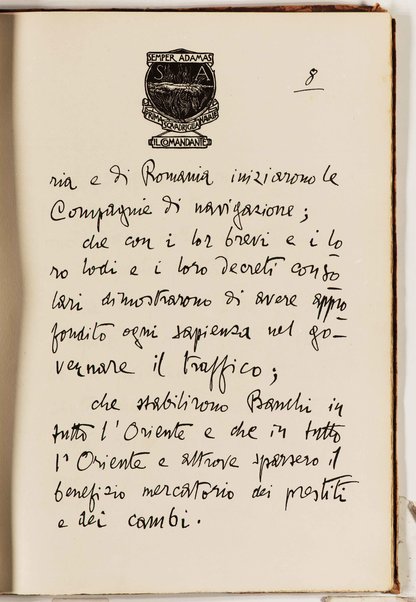 SEMPER ADAMAS
S A
PRIMA SQUADRIGLIA NAVALE
IL COMANDANTE
8
ria e di Romania iniziarono le
Compagnie di navigazione;
che con i lor brevi e i lo
ro lodi e i loro decreti conso
lari dimostrarono di avere appro
fondito ogni sapienza nel go-
vernare il traffico;
che stabilirono Banchi in
tutto l'Oriente e che in tutto
l'Oriente e altrove sparsero il
benefizio mercatorio dei prestiti
e dei cambi.